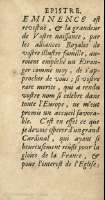 EPISTRE.
EMINENCE est
revestuë, & la grandeur
de Vostre naissance, par
les alliances Royales de
vostre illustre famille, au-
roient empéché un Estran-
ger comme moy, de s'ap-
procher de vous; si vostre
rare merite, qui a rendu
vostre nom si celebre dans
toute l'Europe, ne m'eut
promis un accueil favora-
ble. C'est en effet ce que
je devois esperer d'un grand
Cardinal, qui ayant si
heureusement reussi pour la
gloire de la France, &
pour l'interest de l'Eglise,